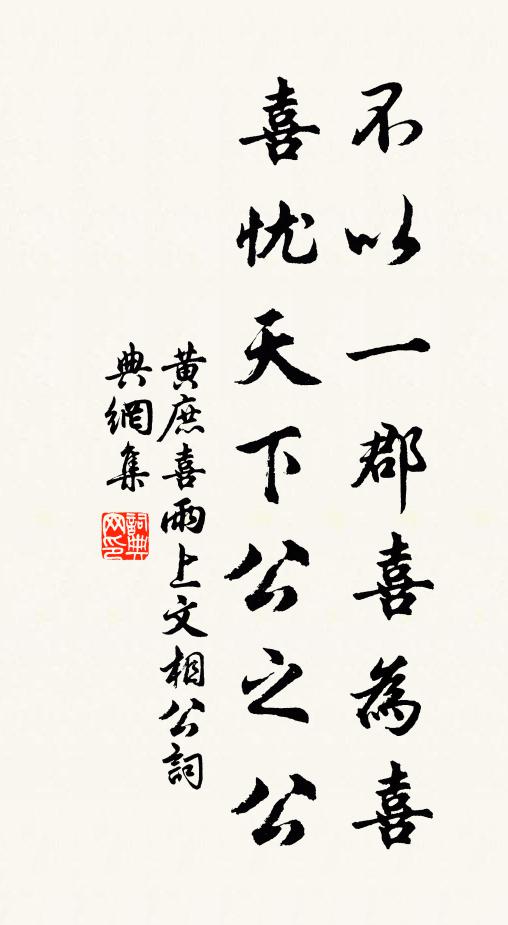 不以一郡喜為喜
喜忧天下公之公
黃庶喜雨上文相公詞
典網集
詞典
网印